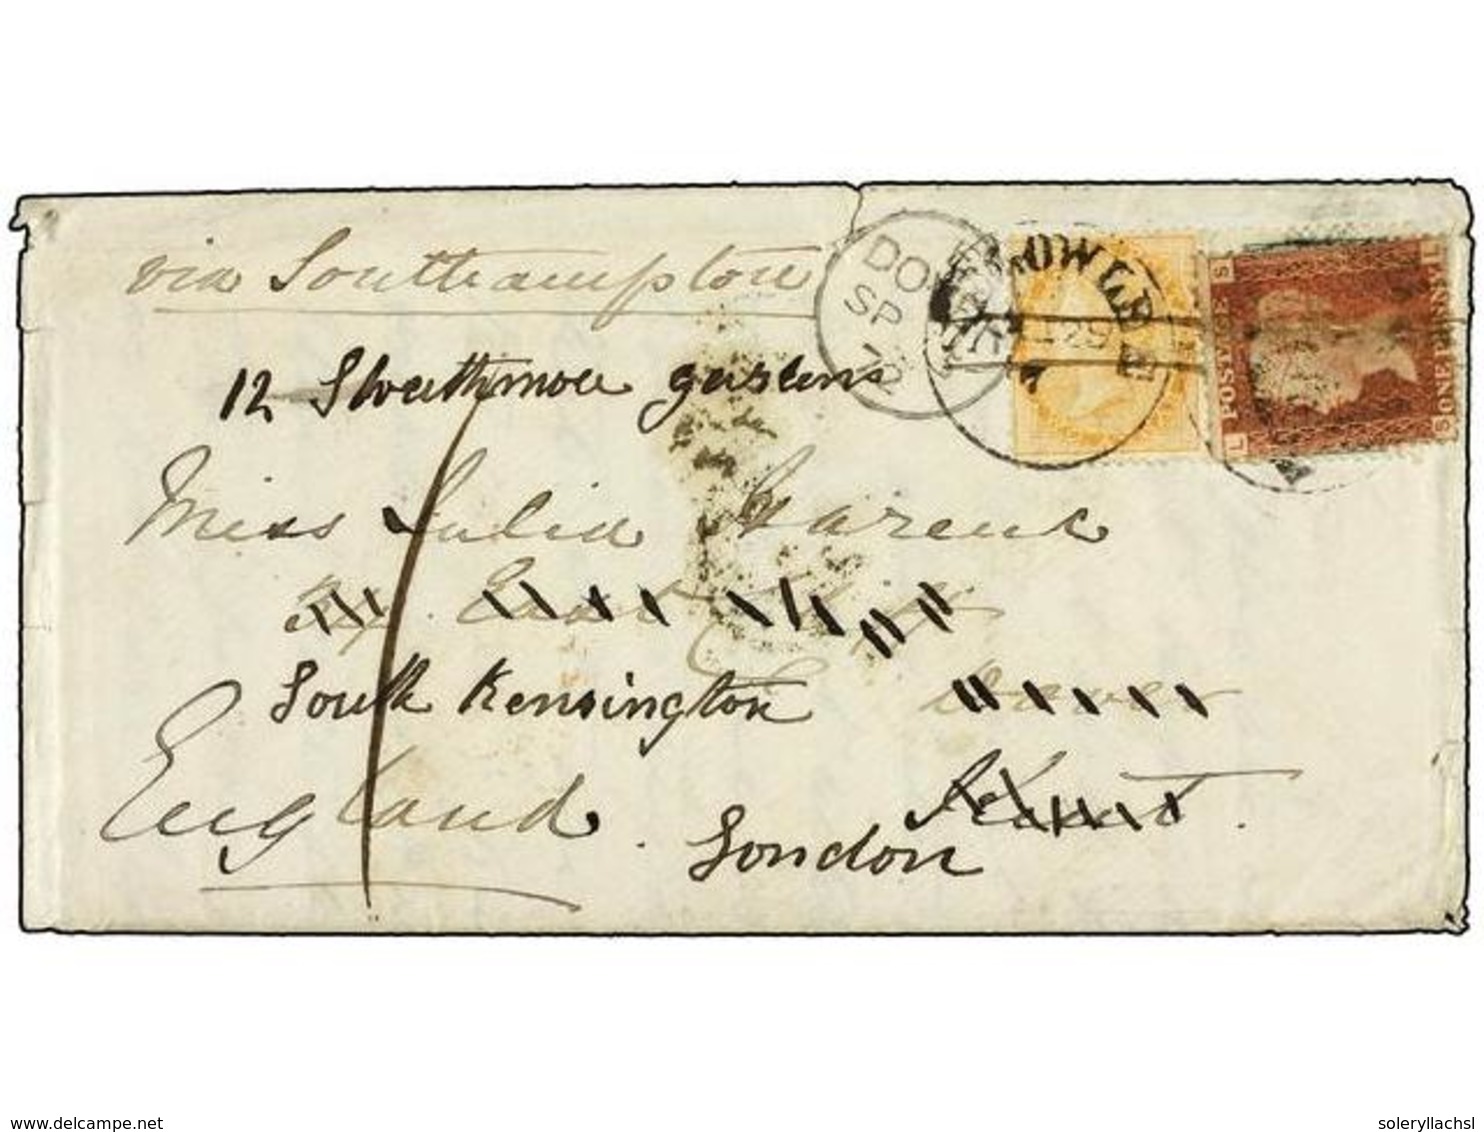 via Southampton
DO
SP
72
POSTAGE
ONE PENNY
S L
L S
12 Strathmore gardens
Miss Julia
East
South Kensington
Dover
England
Kent
London
delcampe.net
soleryllachsl